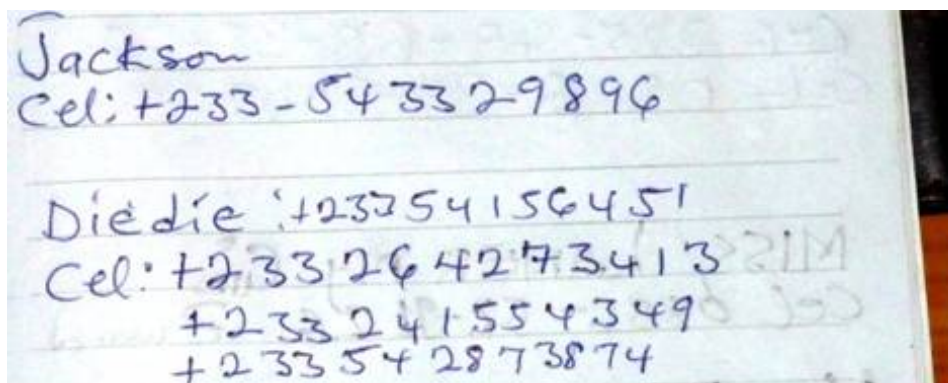 Jackson
Cel: +233-5433329896
Diédie : +23354156451
Cel: +233264273413
+233241554349
+233542873874